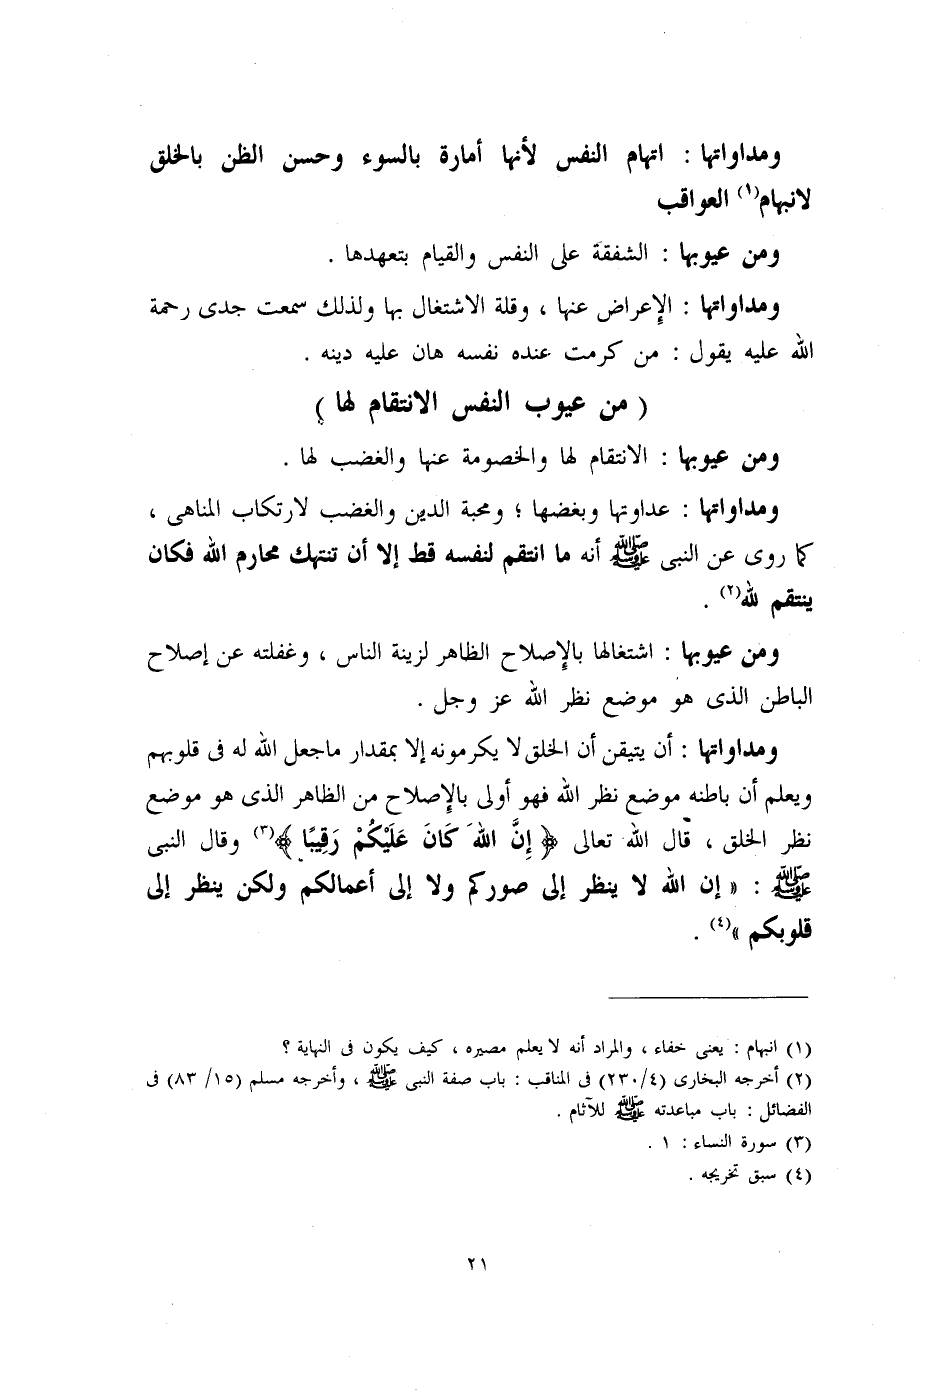 ومداواتها : اتهام النفس لأنها أمارة بالسوء وحسن الظن بالخلق
لانبهام(١) العواقب
ومن عيوبها : الشفقة على النفس والقيام بتعهدها .
ومداواتها : الإعراض عنها ، وقلة الاشتغال بها ولذلك سمعت جدى رحمة
الله عليه يقول : من كرمت عنده نفسه هان عليه دينه .
( من عيوب النفس الانتقام لها )
ومن عيوبها : الانتقام لها والخصومة عنها والغضب لها .
ومداواتها : عداوتها وبغضها ؛ ومحبة الدين والغضب لارتكاب المناهى ،
كما روى عن النبى ﷺ أنه ما انتقم لنفسه قط إلا أن تنتهك محارم الله فكان
ينتقم لله(٢) .
ومن عيوبها : اشتغالها بالإصلاح الظاهر لزينة الناس ، وغفلته عن إصلاح
الباطن الذى هو موضع نظر الله عز وجل .
ومداواتها : أن يتيقن أن الخلق لا يكرمونه إلا بمقدار ماجعل الله له فى قلوبهم
ويعلم أن باطنه موضع نظر الله فهو أولى بالإصلاح من الظاهر الذى هو موضع
نظر الخلق ، قال الله تعالى ﴿ إِنَّ اللهَ كَانَ عَلَيْكُمْ رَقِيبًا ﴾(٣) وقال النبى
ﷺ : « إن الله لا ينظر إلى صوركم ولا إلى أعمالكم ولكن ينظر إلى
قلوبكم »(٤) .
(١) انبهام : يعنى خفاء ، والمراد أنه لا يعلم مصيره ، كيف يكون فى النهاية ؟
(٢) أخرجه البخارى (٢٣٠/٤) فى المناقب : باب صفة النبى ﷺ ، وأخرجه مسلم (١٥/ ٨٣) فى
الفضائل : باب مباعدته ﷺ للآثام .
(٣) سورة النساء : ١ .
(٤) سبق تخريجه .
٢١